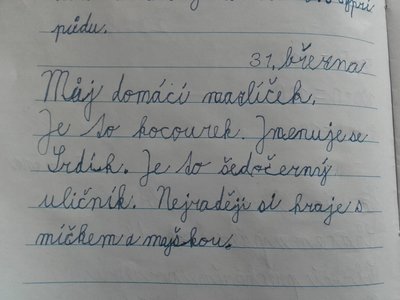 půdu.
31. března
Můj domácí mazlíček.
Je to kocourek. Jmenuje se
Srdík. Je to šedočerný
uličník. Nejraději si hraje s
míčkem a myškou.